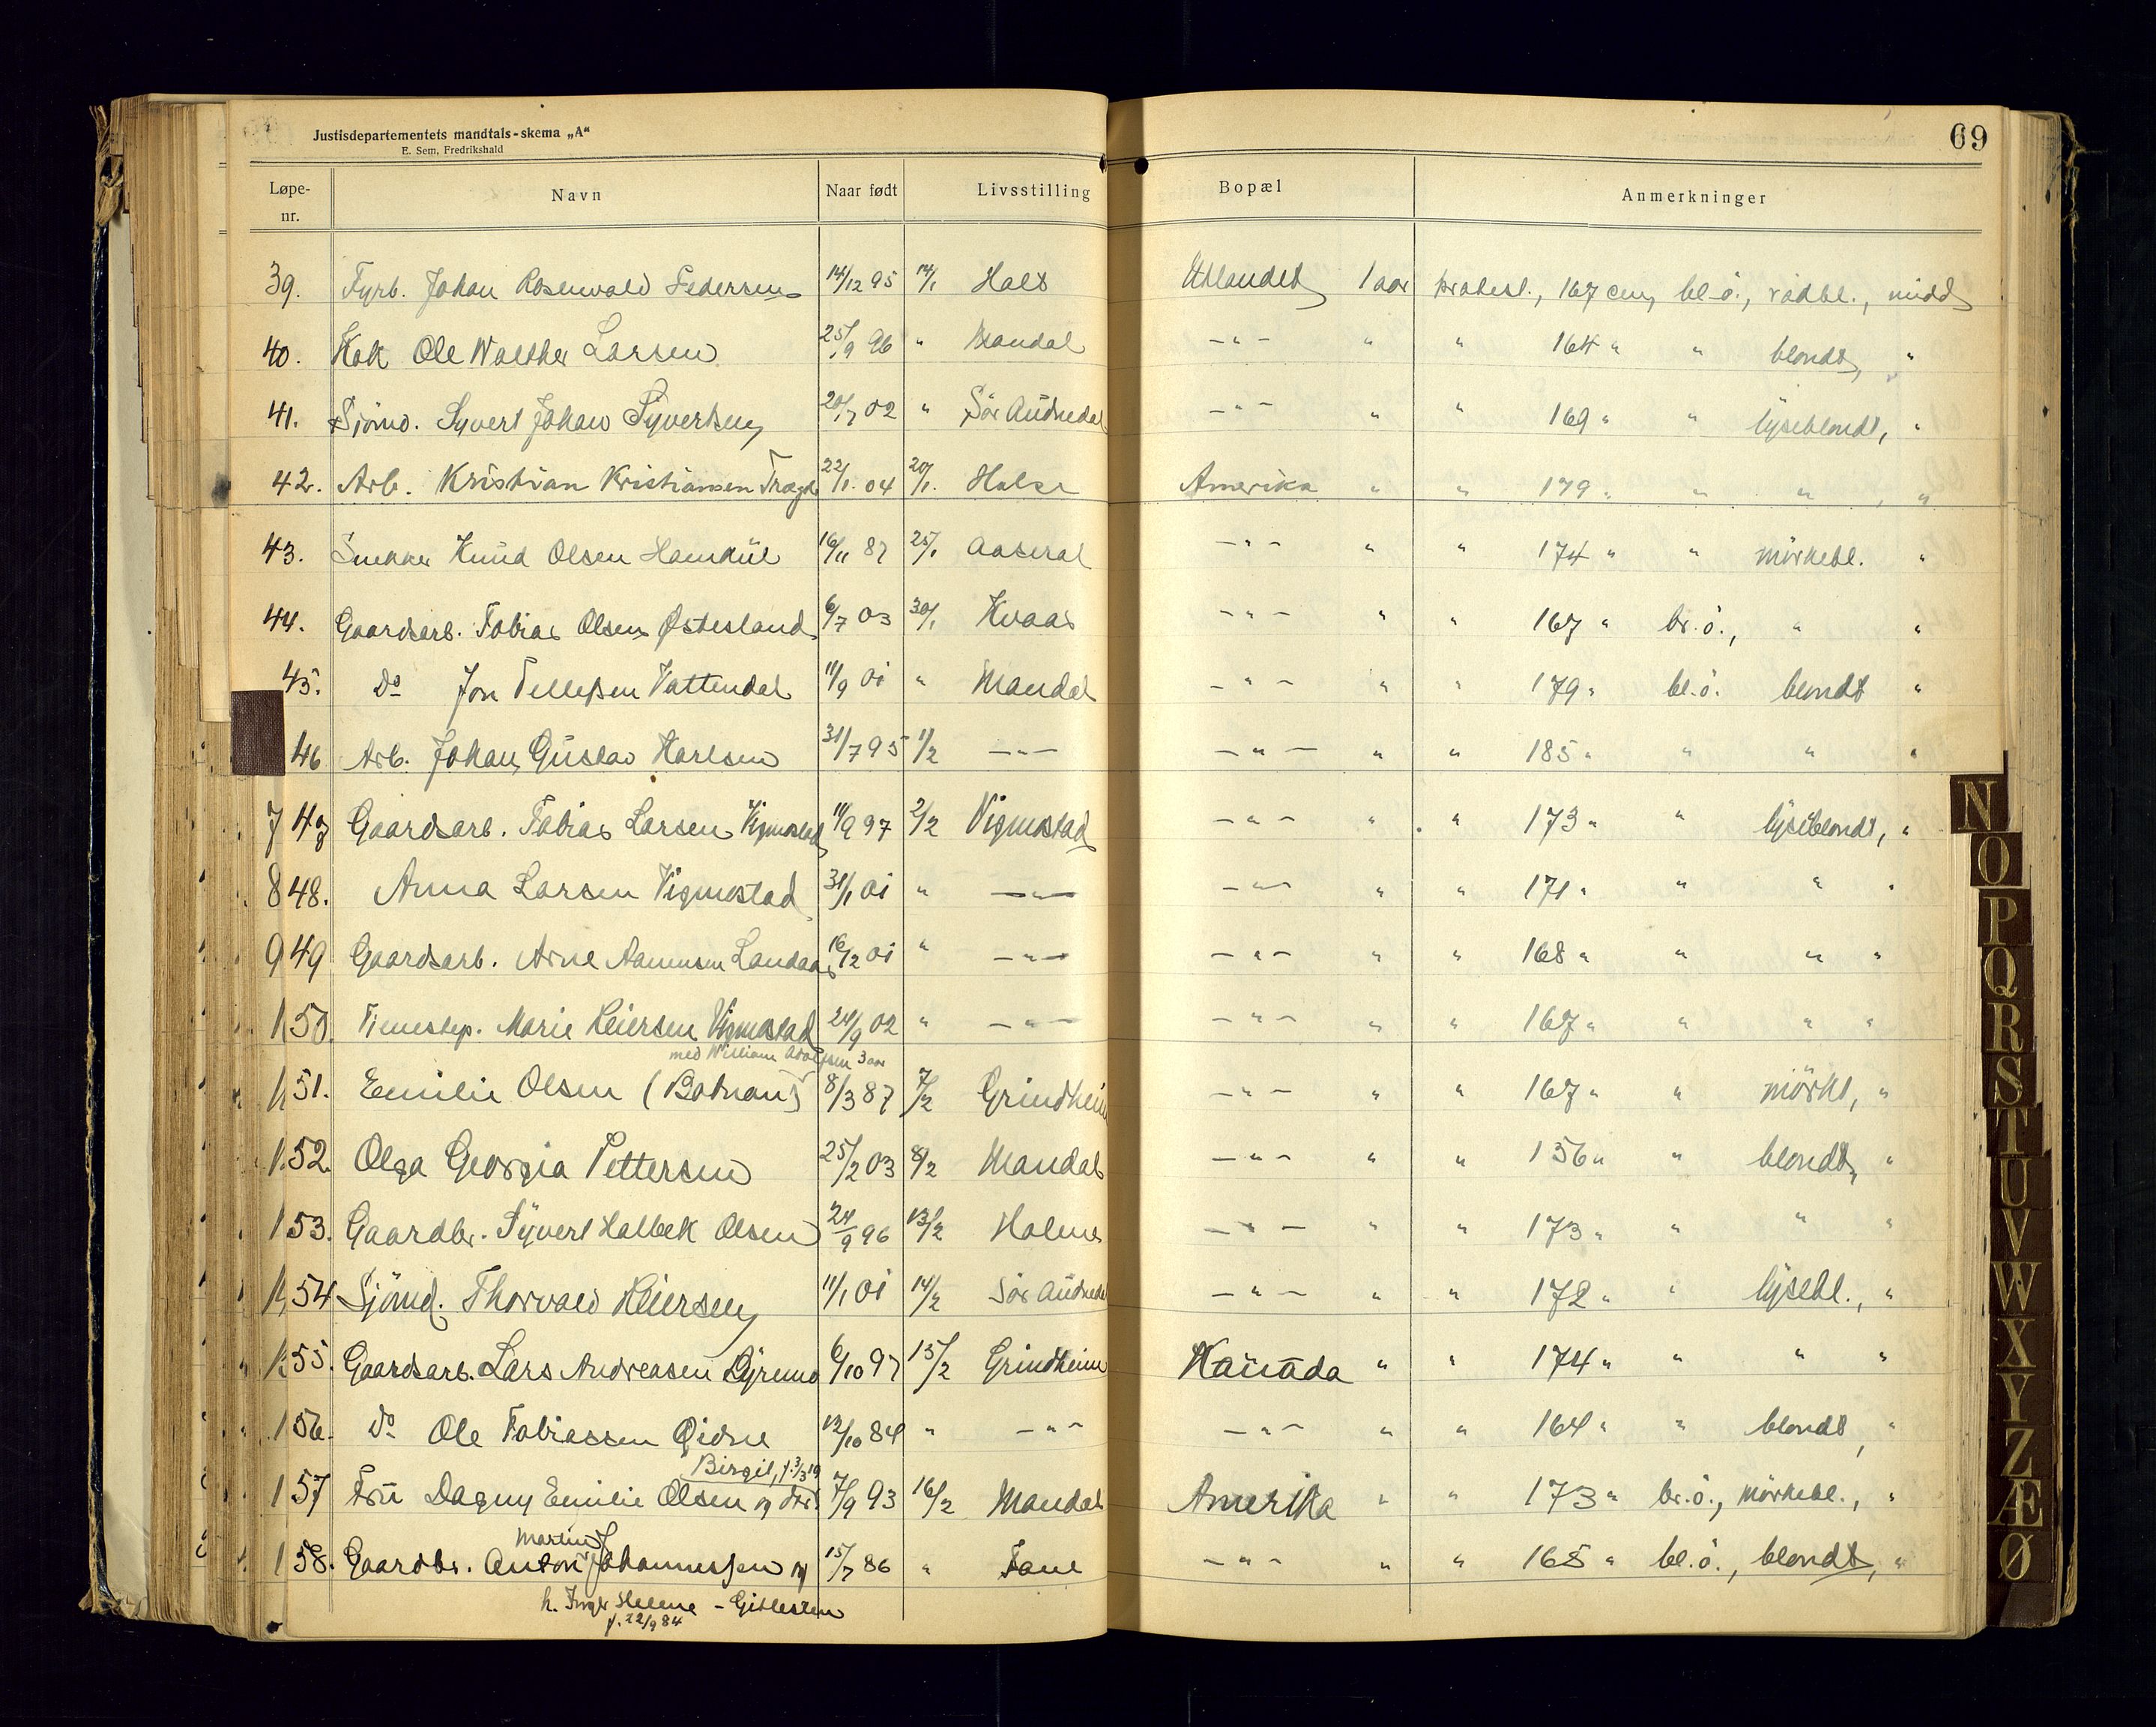 Justisdepartementets mandtals-skema „A“
E. Sem, Fredrikshald
69
Løpe-nr. Navn Naar født Livsstilling Bopæl Anmerkninger
39. Fyrb. Johan Rosenvald Pedersen 14/12 95 14/1 Halse Utlandet 1 aar protest., 167 cm, bl.ö., rødbl., midd
40. Kok Ole Walther Larsen 25/9 96 " Mandal -"- " " 164 " " blondt, "
41. Sjömd. Syvert Johan Syvertsen 20/7 02 " Sör Audnedal -"- " " 169 " " lyseblondt, "
42. Arb. Kristian Kristiansen Tregde 22/1. 04 20/1. Halse Amerika " " 179 " " " , "
43. Snekker Knud Olsen 16/11 87 25/1 Aaseral -"- " " 174 " " mörkebl. "
44. Gaardsarb. Tobias Olsen Østesland 6/7 03 30/1 Kvaas -"- " " 167 " br.ö., " "
45. Do Jon Tellefsen Vattendal 11/9 01 " Mandal -"- " " 179 " bl.ö. blondt "
46 Arb. Johan Gustav Karlsen 31/7 95 1/2 -"- -"- " " 185 " " " "
7 47 Gaardsarb. Tobias Larsen Vigmostad 11/9 97 2/2 Vigmostad -"- " " 173 " " lyseblondt, "
8 48. Anna Larsen Vigmostad 31/1 01 " -"- -"- " " 171 " " " "
9 49 Gaardsarb. Arne Aanensen Landaas 16/12 01 " -"- -"- " " 168 " " " "
1 50. Tjenestep. Marie Reiersen Vigmostad 24/9 02 " -"- -"- " " 167 " " " "
med William Adolfsen 3 aar
1 51. Emilie Olsen (Botnan) 8/3 87 7/2 Grindheim -"- " " 167 " " mörkt, "
1 52. Olga Georgia Pettersen 25/2 03 8/2 Mandal -"- " " 156 " " blondt, "
1 53. Gaardbr. Syvert Halbek Olsen 24/9 96 13/2 Holme -"- " " 173 " " " "
1 54 Sjömd. Thorvald Reiersen 11/1 01 14/2 Sör Audnedal -"- " " 172 " " lysebl., "
1 55. Gaardsarb. Lars Andreasen 6/10 97 15/2 Grindheim Kanada " " 174 " " " "
1 56. Do Ole Tobiassen Eidse 12/10 84 " -"- -"- " " 164 " " blondt, "
Birgit, f. 3/3 19
1 57 Fru Dagny Emilie Olsen og 7/9 93 16/2 Mandal Amerika " " 173 " br.ö., mörkebl., "
Martin
1 58. Gaardbr. Anton Johannessen og 15/7 86 " -"- " " 168 " bl.ö., blondt, "
h. Inger Helene - Gitlesten
f. 22/9 84
N
O
P
Q
R
S
T
U
V
W
X
Y
Z
Æ
Ø